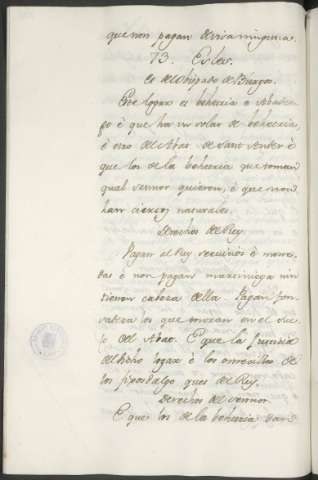 que non pagan otra ninguna.
73. Cilos.
es del obispado de Burgos.
Este logar es behetria e abaden-
go è que ha un solar de behetria,
è otro del Abat de Sant Ander è
que los de la behetria que toman
qual sennor quieren, è que non
han ciertos naturales.
Derechos del Rey
Pagan al Rey servicios è mone-
das è non pagan marzniega nin
tienen cabeza della. Pagan fon-
sadera los que moran en el sue-
lo del Abat. E que la justicia
del dicho logar è los omecillos de
los fijosdalgo ques del Rey.
Derechos del sennor
E que los de la behetria dan à